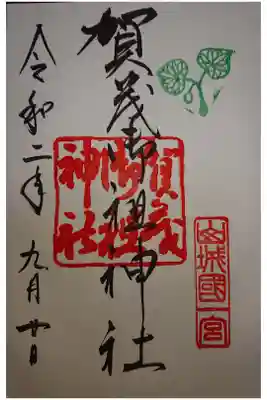 山城國
一宮
賀茂御祖神社
賀茂
御祖
神社
令和二年
九月廿日